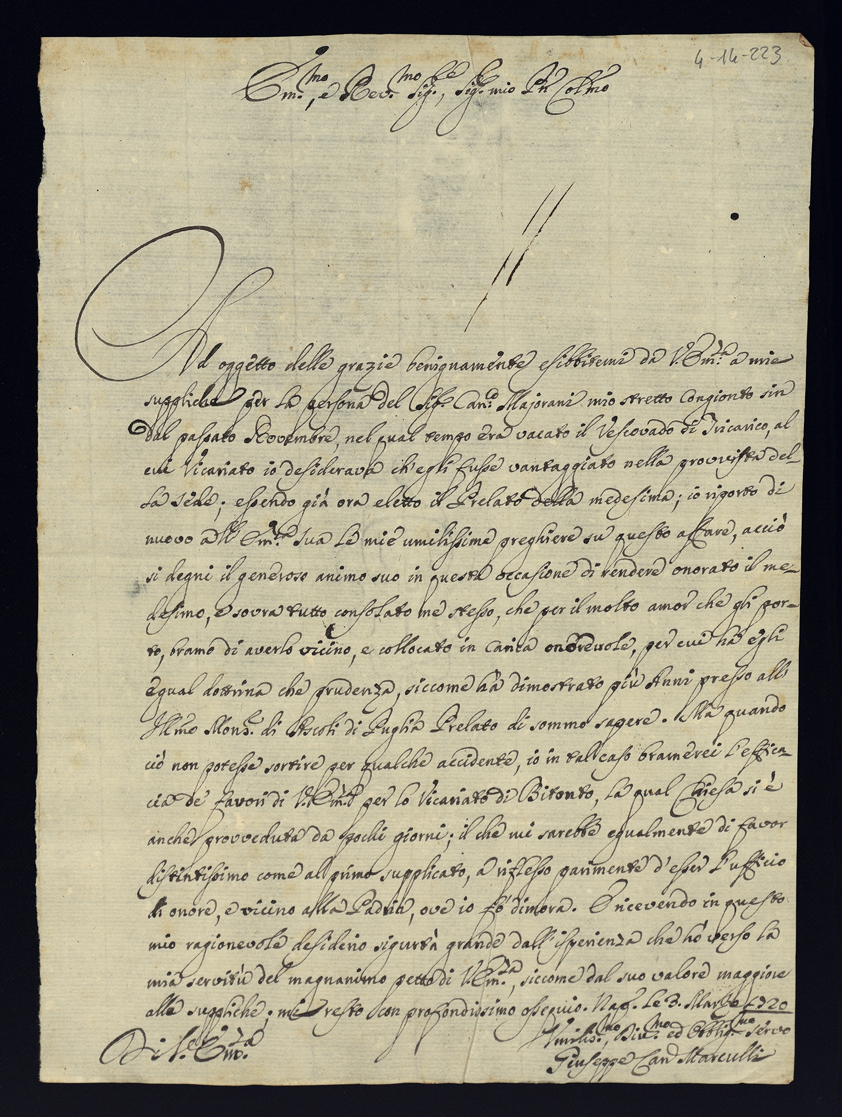 4-14-223
Em.mo, e Rev.mo Sig.re, Sig.r mio P.n Col.mo
Ad oggetto delle grazie benignamente esibbitemi da V. Em.za a mie
suppliche per la persona del Sig.r Can.co Majorani mio stretto congionto sin
dal passato Novembre, nel qual tempo era vacato il Vescovado di Tricarico, al
cui Vicariato io desiderava ch'egli fusse vantaggiato nella provvista del-
la sede; essendo già ora eletto il Prelato della medesima; io riporto di
nuovo all'Em.za sua le mie umilissime preghiere su questo affare, acciò
si degni il generoso animo suo in questa occasione di rendere onorato il me-
desimo, e sovra tutto consolato me stesso, che per il molto amor che gli por-
to, bramo di averlo vicino, e collocato in carica onorevole, per cui ha egli
egual dottrina che prudenza, siccome hà dimostrato più Anni presso all'
Ill.mo Mons.r di Ascoli di Puglia Prelato di sommo sapere. Ma quando
ciò non potesse sortire per qualche accidente, io in tal caso bramerei l'effica-
cia de' favori di V. Em.za per lo Vicariato di Bitonto, la qual Chiesa si è
anche provveduta da pochi giorni; il che mi sarebbe egualmente di favor
distintissimo come al primo supplicato, a riflesso parimente d'esser l'ufficio
di onore, e vicino alla Padria, ove io fò dimora. E ricevendo in questo
mio ragionevole desiderio sigurtà grande dall'isperienza che hò verso la
mia servitù del magnanimo petto di V. Em.za, siccome dal suo valore maggiore
alle suppliche; mi resto con profondissimo ossequio. Nap. Le 3. Marzo 1720
Di V. Em.za
Umilis.mo, Div.mo ed Obblig.mo Servo
Giuseppe Can.co Marculli